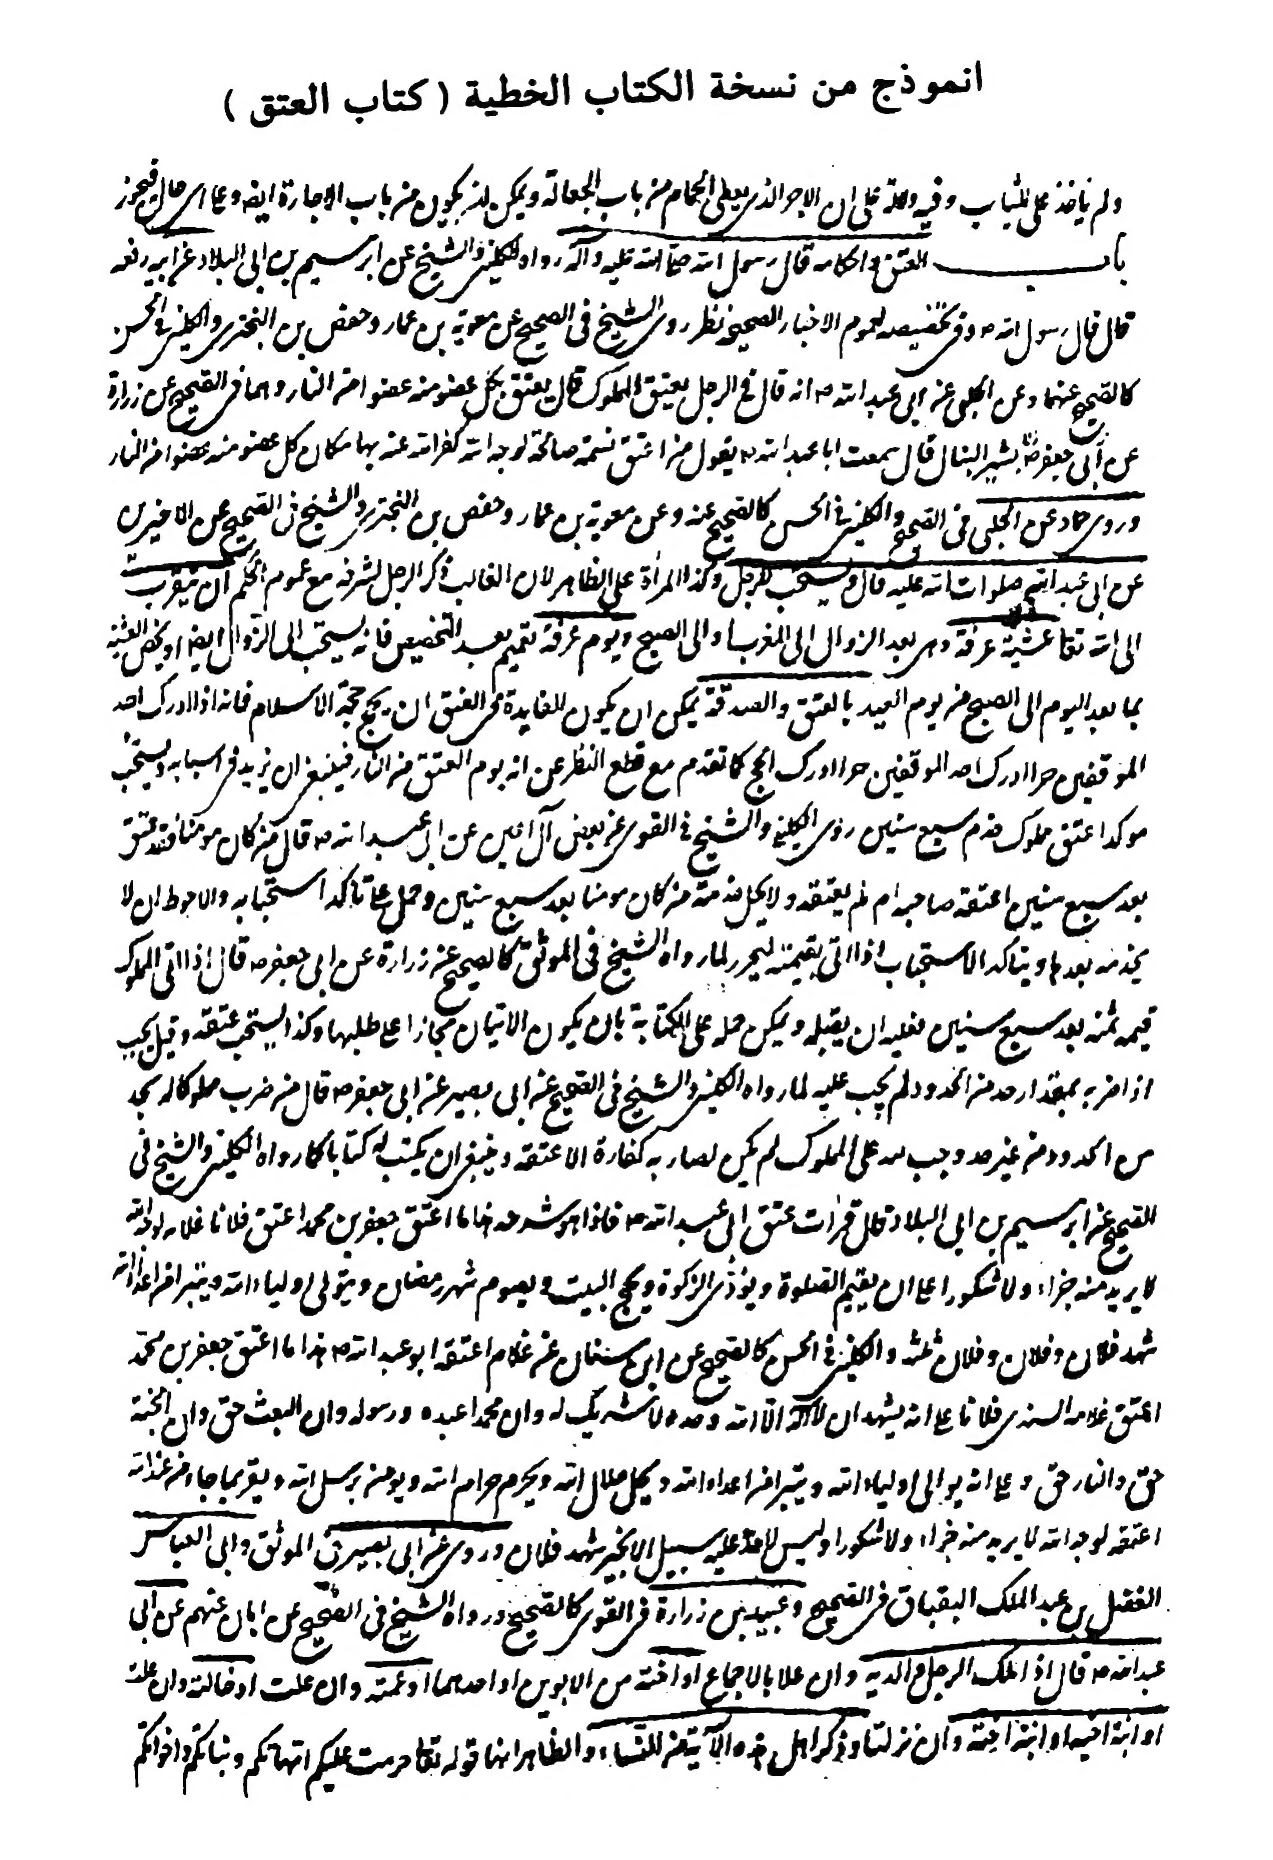 انموذج من نسخة الكتاب الخطية ( كتاب العتق )
ولم يأخذ على الثياب وفيه دلالة على ان الاجر الذى يعطى الحمام من باب الجعالة ويمكن ان يكون من باب الاجارة ايضا وعلى اى حال فيجوز
باب العتق واحكامه قال رسول الله صلى الله عليه وآله رواه الكلينى والشيخ عن ابرهيم بن ابى البلاد عن ابيه رفعه
قال قال رسول الله ص وفى تخصيصه لعموم الاخبار الصحيحة نظر روى الشيخ فى الصحيح عن معوية بن عمار وحفص بن البخترى والكلينى فى الحسن
كالصحيح عنهما وعن الحلبى عن ابى عبد الله ص انه قال فى الرجل يعتق المملوك قال يعتق بكل عضو منه عضوا من النار وهما فى الصحيح عن زرارة
عن أبى جعفر بشير النبال قال سمعت ابا عبد الله ع يقول من اعتق نسمة صالحة لوجه الله كفر الله عنه بها مكان كل عضو منه عضوا من النار
وروى حماد عن الحلبى فى الصحيح والكلينى فى الحسن كالصحيح عنه وعن معوية بن عمار وحفص بن البخترى والشيخ فى الصحيح عن الاخيرين
عن ابى عبد الله صلوات الله عليه قال ويستحب للرجل وكذا المرأة على الظاهر لان الغالب ذكر الرجل لشرفه مع عموم الحكم ان يتقرب
الى الله تعا عشية عرفة وهى بعد الزوال الى المغرب او الى الصبح ويوم عرفة تعميم بعد التخصيص فانه يستحب الى الزوال ايضا او يخص العشية
بما بعد اليوم الى الصبح من يوم العيد بالعتق والصدقة يمكن ان يكون الفايدة فى العتق ان يحج حجة الاسلام فانه اذا ادرك احد
الموقفين حرا ادرك احد الموقفين حرا ادرك الحج كما تقدم مع قطع النظر عن انه يوم العتق من النار فينبغى ان يزيد فى اسبابه ويستحب
موكدا عتق مملوك خدم سبع سنين روى الكلينى والشيخ فى القوى عن بعض آل اعين عن ابى عبد الله ص قال من كان مومنا فقد عتق
بعد سبع سنين اعتقه صاحبه ام لم يعتقه ولا يحل خدمة من كان مومنا بعد سبع سنين وحمل على تاكد استحبابه والاحوط ان لا
يخدمه بعدها ويتاكد الاستحباب اذا اتى بقيمته ليحرر لما رواه الشيخ فى الموثق كالصحيح عن زرارة عن ابى جعفر ص قال اذا اتى المملوك
قيمه ثمنه بعد سبع سنين فعليه ان يقبله ويمكن حمله على المكاتبة بان يكون الاتيان مجازا على طلبها وكذا يستحب عتقه وقيل يجب
اذا ضربه بمقدار حد من الحدود ولم يجب عليه لما رواه الكلينى والشيخ فى الصحيح عن ابى بصير عن ابى جعفر ص قال من ضرب مملوكا له بحد
من الحدود من غير حد وجب لله على المملوك لم يكن لضاربه كفارة الا عتقه وينبغى ان يكتب له كتابا كما رواه الكلينى والشيخ فى
الصحيح عن ابرهيم بن ابى البلاد قال قرأت عتق ابى عبد الله ص فاذا هو شرحه هذا ما اعتق جعفر بن محمد اعتق فلانا غلامه لوجه الله
لا يريد منه جزاء ولا شكورا على ان يقيم الصلوة ويؤدى الزكوة ويحج البيت ويصوم شهر رمضان ويتولى اولياء الله ويتبرا من اعداء الله
شهد فلان وفلان وفلان ثلثة والكلينى فى الحسن كالصحيح عن ابن سنان عن غلام اعتقه ابو عبد الله ص هذا ما اعتق جعفر بن محمد
اعتق غلامه السندى فلانا على انه يشهد ان لا اله الا الله وحده لا شريك له وان محمدا عبده ورسوله وان البعث حق وان الجنة
حق والنار حق وعلى انه يوالى اولياء الله ويتبرا من اعداء الله ويحل حلال الله ويحرم حرام الله ويومن برسل الله ويقر بما جاء من عند الله
اعتقه لوجه الله لا يريد منه جزاء ولا شكورا وليس لاحد عليه سبيل الا بخير شهد فلان وروى عن ابى بصير فى الموثق وابى العباس
الفضل بن عبد الملك البقباق فى الصحيح وعبيد بن زرارة فى القوى كالصحيح ورواه الشيخ فى الصحيح عن ابان عنهم عن ابى
عبد الله ص قال اذا ملك الرجل والديه وان علا بالاجماع او اخته من الابوين او احدهما او عمته وان علت او خالته وان علت
او ابنة اخيه او ابنة اخته وان نزلتا وذكر اهل هذه الآية من النساء والظاهر انها قوله تعا حرمت عليكم امهاتكم وبناتكم واخواتكم